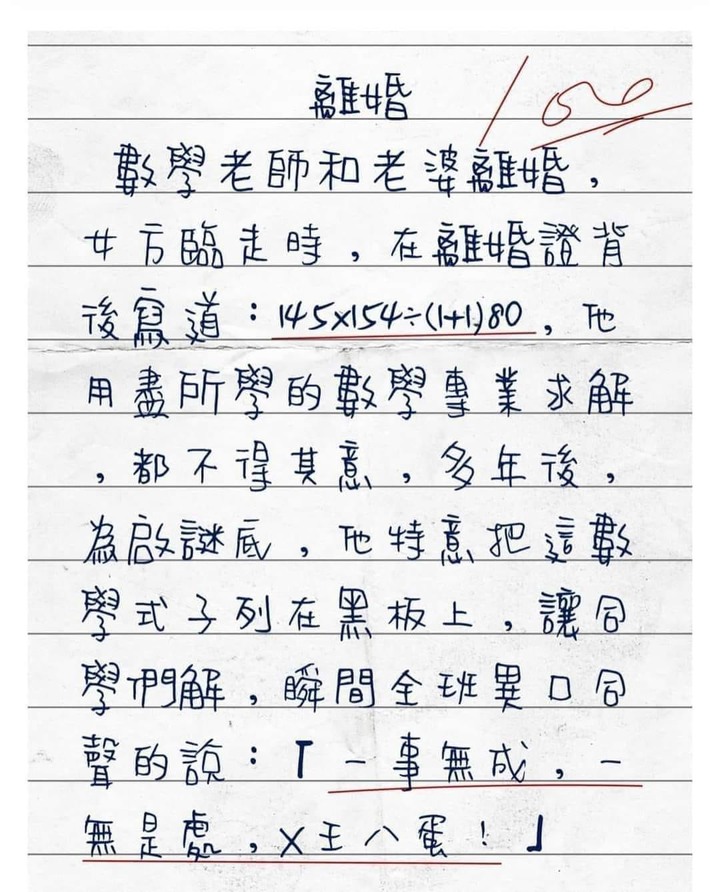 離婚
100
數學老師和老婆離婚，
女方臨走時，在離婚證背
後寫道：145×154÷(1+1)80，他
用盡所學的數學專業求解
，都不得其意，多年後，
為啟謎底，他特意把這數
學式子列在黑板上，讓同
學們解，瞬間全班異口同
聲的說：「一事無成，一
無是處，X王八蛋！」